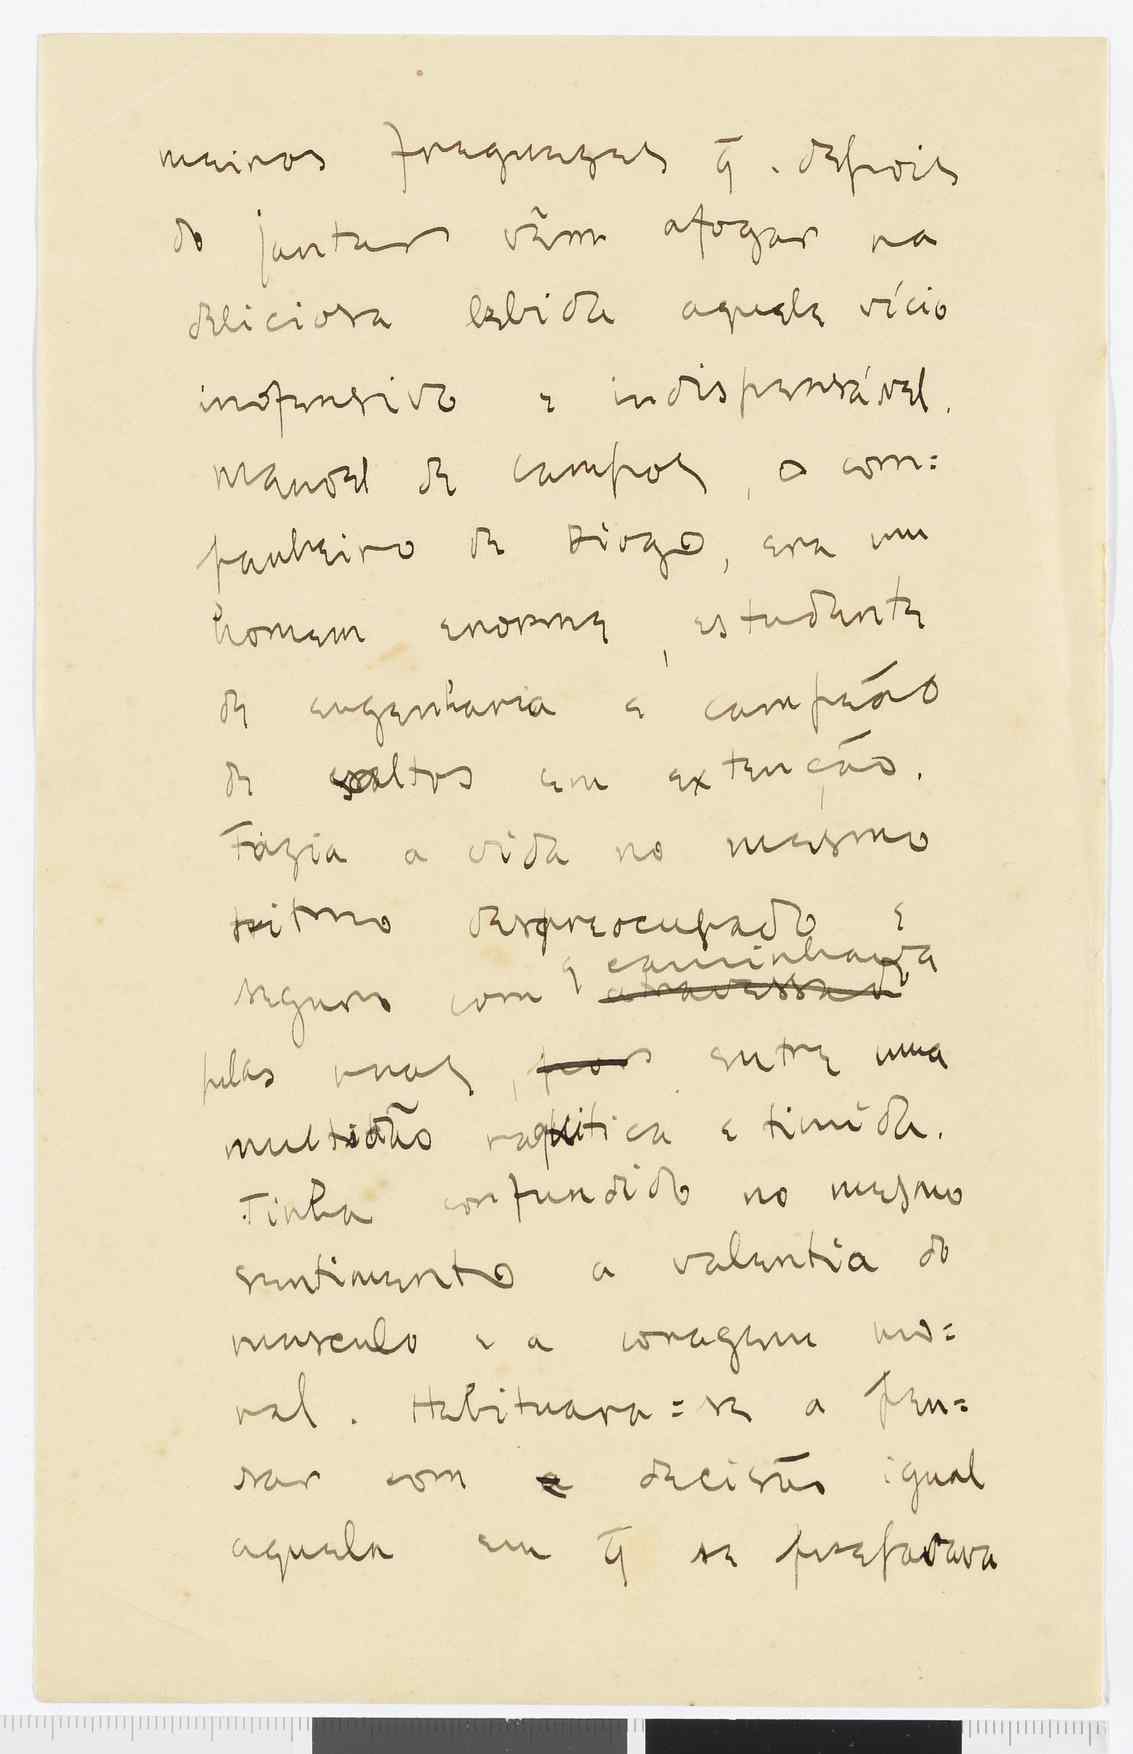 meiros freguezes q̃. depois
do jantar vêm afogar na
deliciosa bebida aquele vício
inofensivo e indispensável.
Manoel de campos, o com=
panheiro de Diogo, era um
homem enorme, estudante
de engenharia e campeão
de saltos em extenção.
Fazia a vida no mesmo
ritmo despreocupado e
seguro com q caminhava
atravessava
pelas ruas, por entre uma
multidão raquitica e timida.
Tinha confundido no mesmo
sentimento a valentia do
musculo e a coragem mo=
ral. Habituara=se a pen=
sar com a decisão igual
aquela em q̃ se preparava